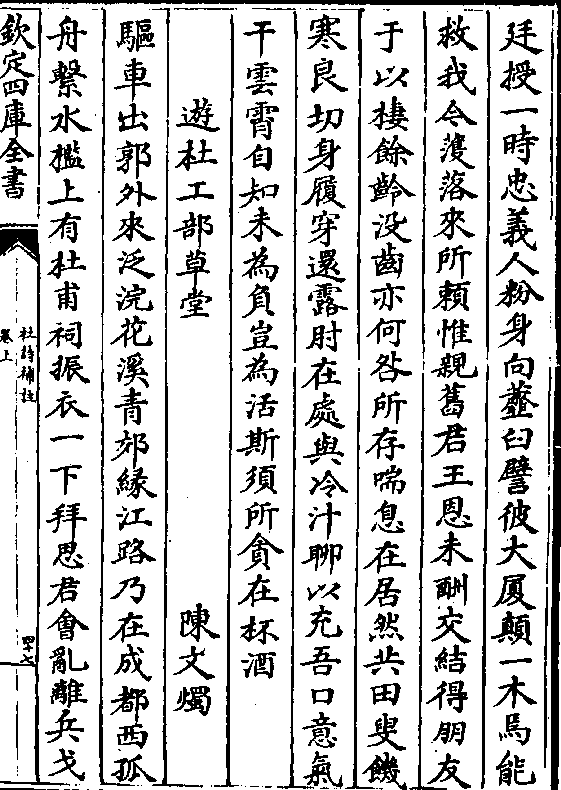 廷授一時忠義人粉身向虀臼譬彼大厦顛一木焉能
救我今濩落來所頼惟親舊君王恩未酬交結得朋友
于以棲餘齡没齒亦何咎所存喘息在居然共田叟饑
寒良切身履穿還露肘在處與冷汁聊以充吾口意氣
干雲霄自知未為負豈為活斯須所貪在杯酒
遊杜工部草堂 陳文燭
驅車出郭外來泛浣花溪青郊緣江路乃在成都西孤
舟繫水檻上有杜甫祠振衣一下拜思君會亂離兵戈
欽定四庫全書
杜詩補註
卷上
四十七